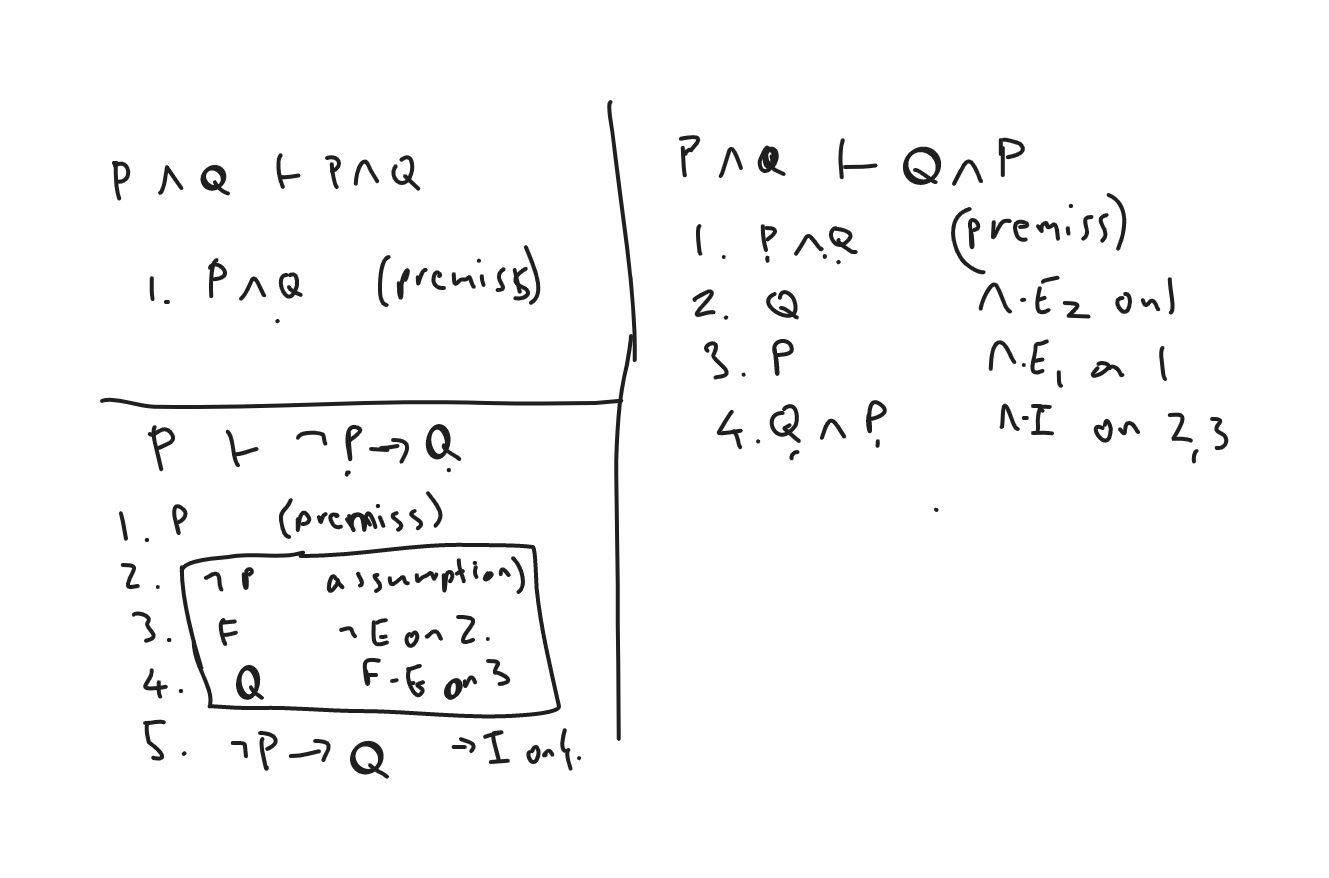 P ∧ Q ⊢ P ∧ Q
1. P ∧ Q (premiss)
P ⊢ ¬P → Q
1. P (premiss)
2. ¬P assumption)
3. F ¬E on 2.
4. Q F-E on 3
5. ¬P → Q →I on 4.
P ∧ Q ⊢ Q ∧ P
1. P ∧ Q (premiss)
2. Q ∧·E₂ on 1
3. P ∧·E₁ on 1
4. Q ∧ P ∧·I on 2,3